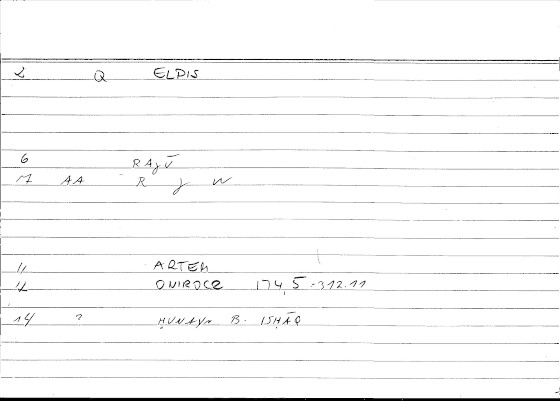 2 Q ELPIS
6 RAJŪ
7 AA R J W
11 ARTEM
12 ONIROCR 174,5-312.11
14 ? ḤUNAYN B. ISḤĀQ